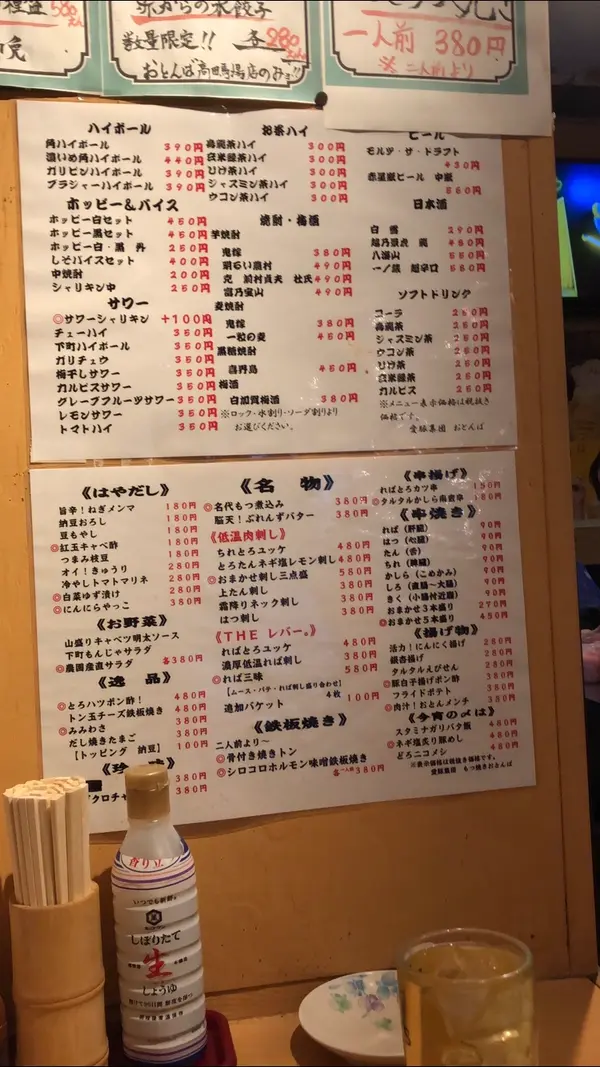 580円
赤からの水餃子
数量限定!! 各280円
おとんば高田馬場店のみ!!
一人前 380円
※二人前より
ハイボール
角ハイボール 390円
濃いめ角ハイボール 440円
ガリビンハイボール 390円
ブラジャーハイボール 390円
ホッピー&バイス
ホッピー白セット 450円
ホッピー黒セット 450円
ホッピー白・黒 丹 250円
しそバイスセット 400円
中焼酎 200円
シャリキン中 250円
サワー
◎サワーシャリキン +100円
チューハイ 350円
下町ハイボール 350円
ガリチュウ 350円
梅干しサワー 350円
カルピスサワー 350円
グレープフルーツサワー 350円
レモンサワー 350円
トマトハイ 350円
お茶ハイ
烏龍茶ハイ 300円
玄米緑茶ハイ 300円
じけ茶ハイ 300円
ジャスミン茶ハイ 300円
ウコン茶ハイ 300円
焼酎・梅酒
芋焼酎
鬼嫁 380円
明るい農村 490円
克 前村貞夫 杜氏 490円
富乃宝山 490円
麦焼酎
鬼嫁 380円
一粒の麦 450円
黒糖焼酎
喜界島 450円
梅酒
白加賀梅酒 380円
※ロック・水割り・ソーダ割りより
お選びください。
ビール
モルツ・ザ・ドラフト
430円
赤星瓶ビール 中瓶
550円
日本酒
白雪 290円
越乃景虎 龍 480円
八海山 550円
一ノ蔵 超辛口 550円
ソフトドリンク
コーラ 250円
烏龍茶 250円
ジャスミン茶 250円
ウコン茶 250円
じけ茶 250円
玄米緑茶 250円
カルピス 250円
※メニュー表示価格は税抜き
価格です。
愛豚集団 おとんば
《はやだし》
旨辛!ねぎメンマ 180円
納豆おろし 180円
豆もやし 180円
◎紅玉キャベ酢 180円
つまみ枝豆 280円
オイ!きゅうり 280円
冷やしトマトマリネ 280円
◎白菜ゆず漬け 380円
◎にんにらやっこ 380円
《お野菜》
山盛りキャベツ明太ソース
下町もんじゃサラダ
◎農園産直サラダ 各380円
《逸 品》
◎とろハツポン酢! 480円
トン玉チーズ鉄板焼き 480円
◎みみわさ 380円
だし焼きたまご 380円
【トッピング 納豆】 100円
《珍 味》
クロチャ 380円
《名 物》
◎名代もつ煮込み 380円
脳天!ぷれんずバター 380円
《低温肉刺し》
ちれとろユッケ 480円
とろたんネギ塩レモン刺し 480円
◎おまかせ刺し三点盛 580円
上たん刺し 380円
霜降りネック刺し 380円
はつ刺し 380円
《THE レバー。》
ればとろユッケ 480円
濃厚低温れば刺し 380円
◎れば三昧 580円
【ムース・パテ・れば刺し盛り合わせ】
追加バケット 4枚 100円
《鉄板焼き》
二人前より~
◎骨付き焼きトン
◎シロコロホルモン味噌鉄板焼き
各一人前380円
《串揚げ》
ればとろカツ串 150円
◎タルタルかしら南蛮串 180円
《串焼き》
れば(肝臓) 90円
はつ(心臓) 90円
たん(舌) 90円
ちれ(脾臓) 90円
かしら(こめかみ) 90円
しろ(直腸~大腸) 90円
きく(小腸付近腸) 90円
おまかせ3本盛り 270円
◎おまかせ5本盛り 450円
《揚げ物》
活力!にんにく揚げ 280円
銀杏揚げ 280円
タルタルえびせん 280円
◎豚白子揚げポン酢 380円
フライドポテト 380円
◎肉汁!おとんメンチ 380円
《今宵の〆は》
スタミナガリバタ飯 480円
◎ネギ塩炙り豚めし 480円
どろニコメシ 480円
※表示価格は税抜き価格です。
愛豚集団 もつ焼きおとんば
香り立
いつでも新鮮。
キッコーマン
しぼりたて
生
しょうゆ